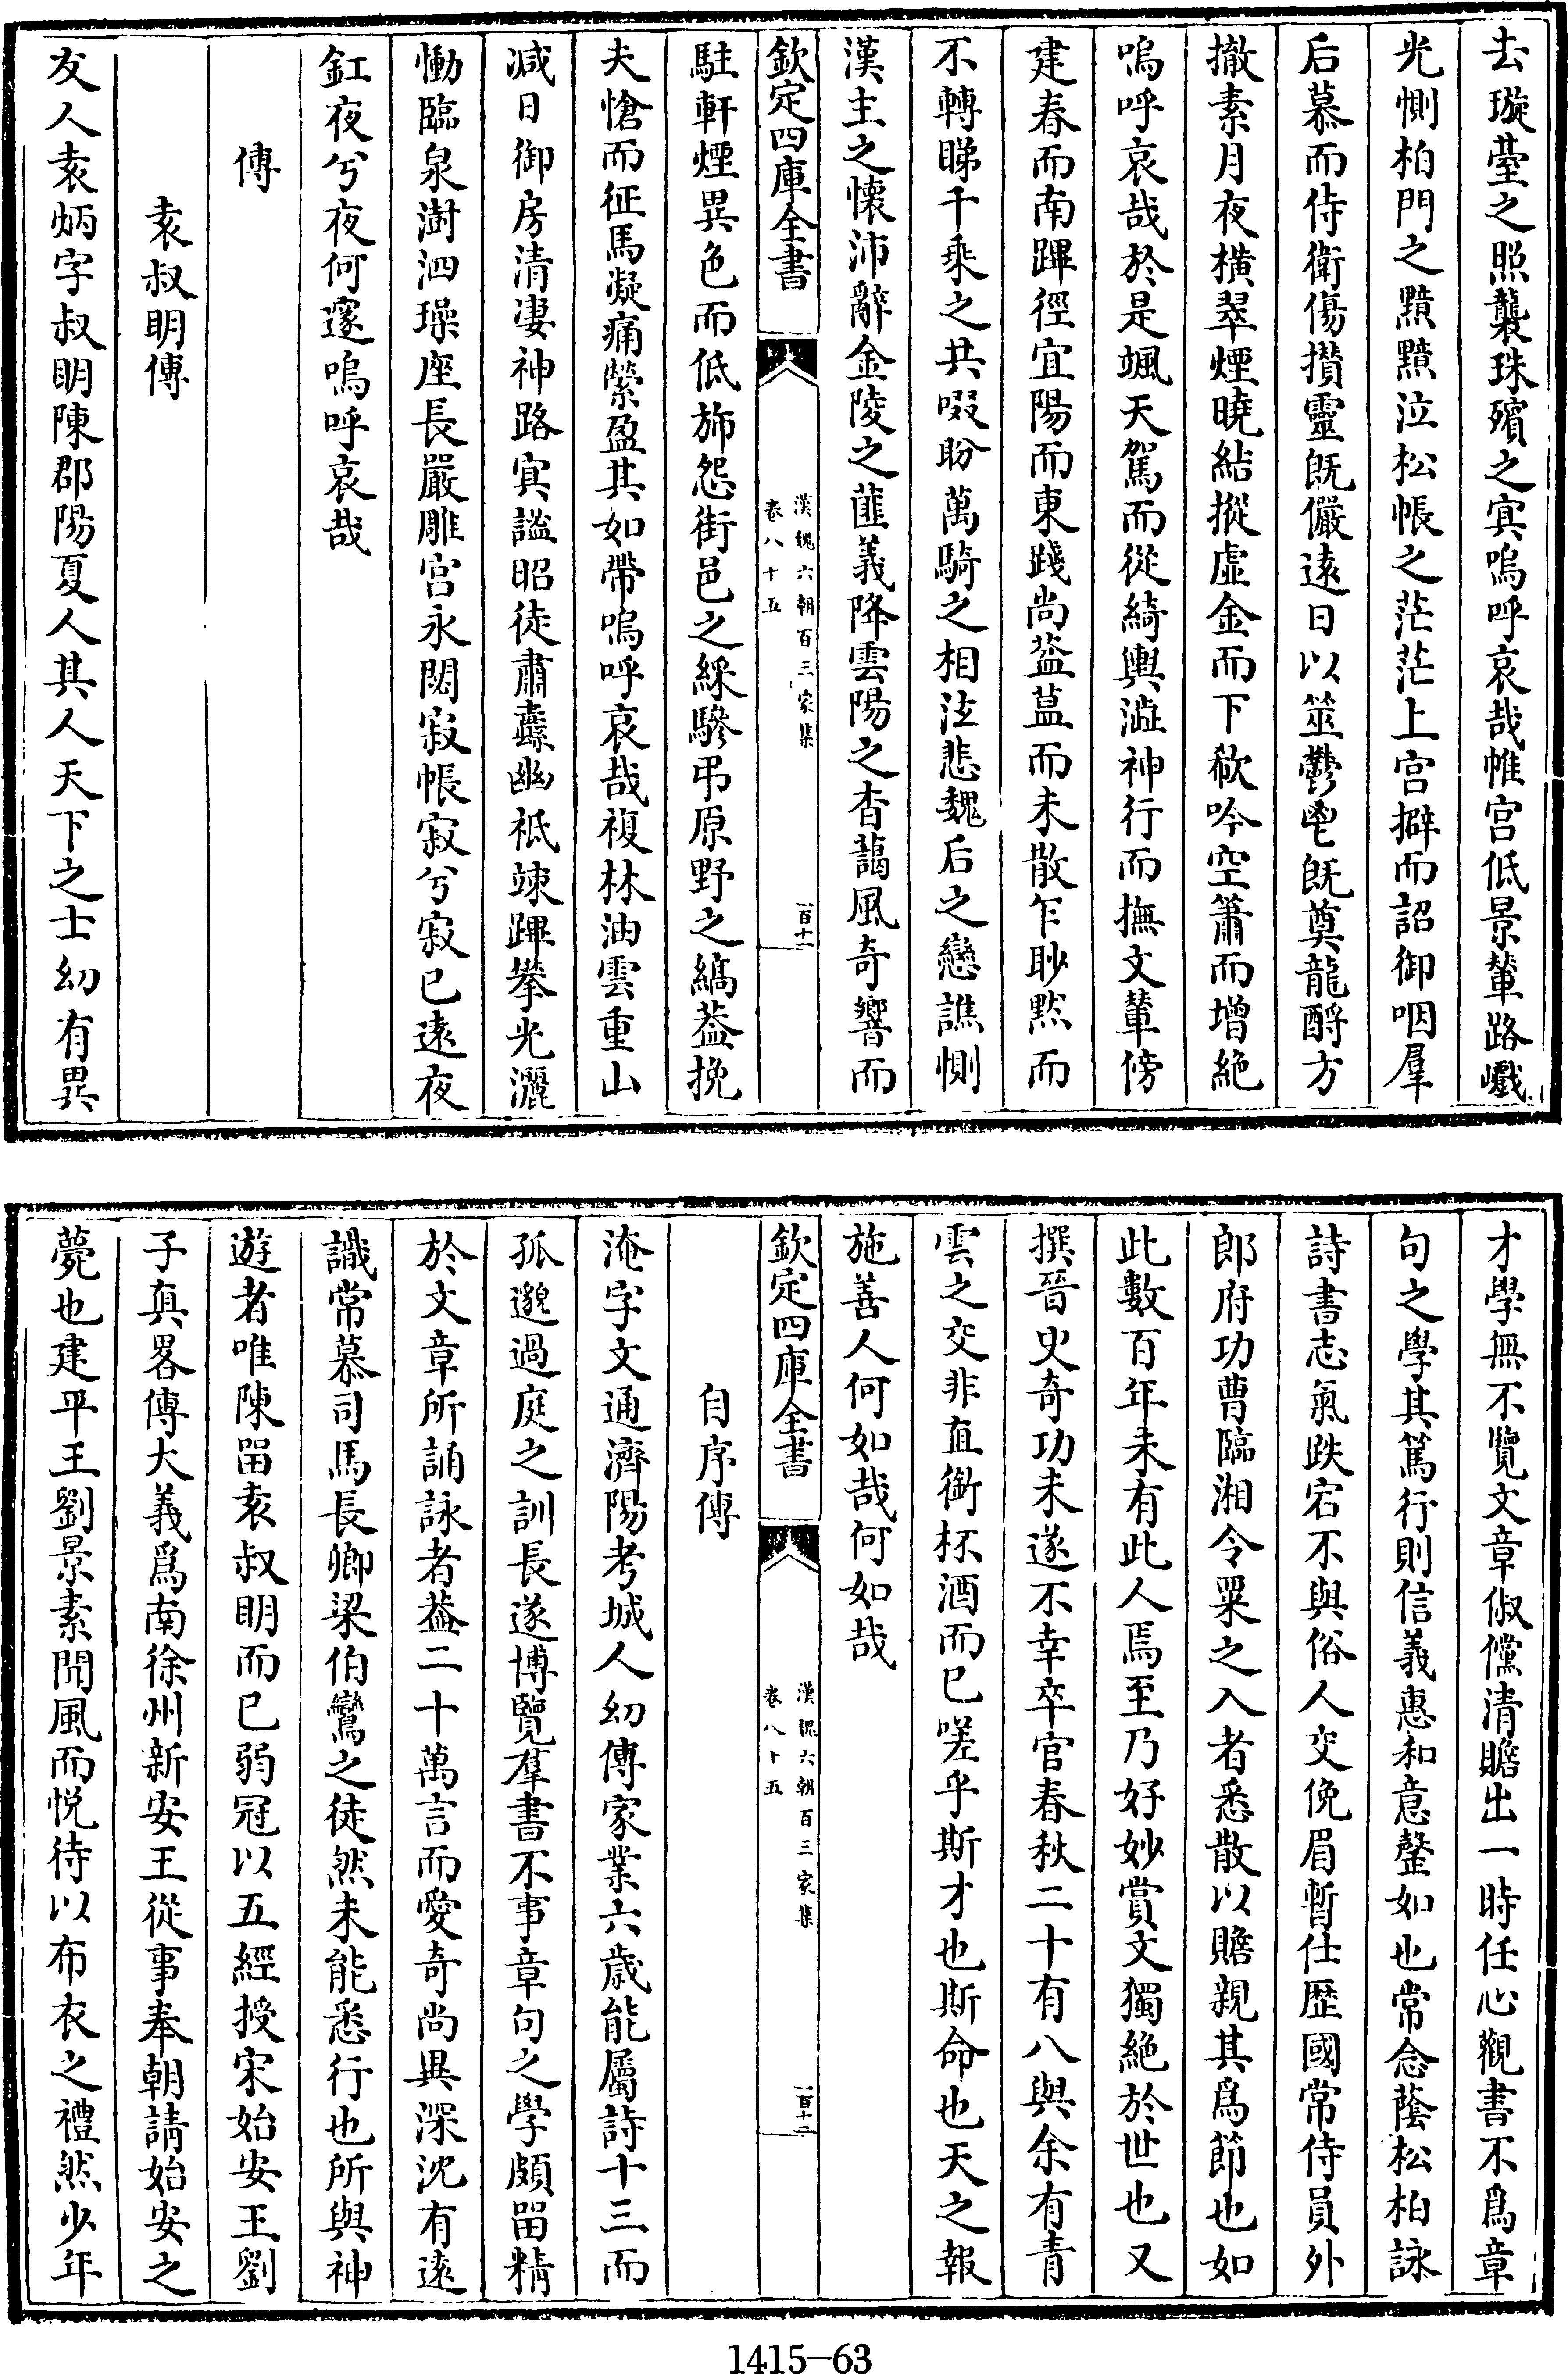 去璇臺之照襲珠殯之寘嗚呼哀哉帷宫低景輦路巇
光惻柏門之黯黯泣松帳之茫茫上宫擗而詔御咽羣
后慕而侍衛傷攅靈既儼逺日以筮鬱鬯既奠龍酹方
撤素月夜横翠煙曉結摐虚金而下欷吟空簫而增絶
嗚呼哀哉於是颯天駕而從綺輿澁神行而撫文輦傍
建春而南蹕徑宜陽而東踐尚葢藴而未散乍眇黙而
不轉睇千乘之共啜盼萬騎之相泣悲魏后之戀譙惻
漢主之懷沛辭金陵之葅義降雲陽之杳藹風奇響而
欽定四庫全書
漢魏六朝百三家集
卷八十五
一百十一
駐軒煙異色而低斾怨街邑之綵驂弔原野之縞葢挽
夫愴而征馬凝痛縈盈其如帶嗚呼哀哉複林油雲重山
減日御房清凄神路寘謐昭徒肅纛幽祇竦蹕攀光灑
慟臨泉澍泗璪座長嚴雕宫永閟寂帳寂兮寂已逺夜
釭夜兮夜何邃嗚呼哀哉
傳
袁叔明傳
友人袁炳字叔明陳郡陽夏人其人天下之士幼有異
才學無不覽文章俶儻清贍出一時任心觀書不爲章
句之學其篤行則信義惠和意罄如也常念蔭松柏詠
詩書志氣跌宕不與俗人交俛眉暫仕歴國常侍員外
郎府功曹臨湘令粟之入者悉散以贍親其爲節也如
此數百年未有此人焉至乃好妙賞文獨絶於世也又
撰晉史奇功未遂不幸卒官春秋二十有八與余有青
雲之交非直銜杯酒而已嗟乎斯才也斯命也天之報
施善人何如哉何如哉
欽定四庫全書
漢魏六朝百三家集
卷八十五
一百十二
自序傳
淹字文通濟陽考城人幼傳家業六歳能屬詩十三而
孤邈過庭之訓長遂博覽羣書不事章句之學頗留精
於文章所誦詠者葢二十萬言而愛奇尚異深沈有逺
識常慕司馬長卿梁伯鸞之徒然未能悉行也所與神
遊者唯陳留袁叔明而已弱冠以五經授宋始安王劉
子真畧傳大義爲南徐州新安王從事奉朝請始安之
薨也建平王劉景素聞風而悦待以布衣之禮然少年
1415-63